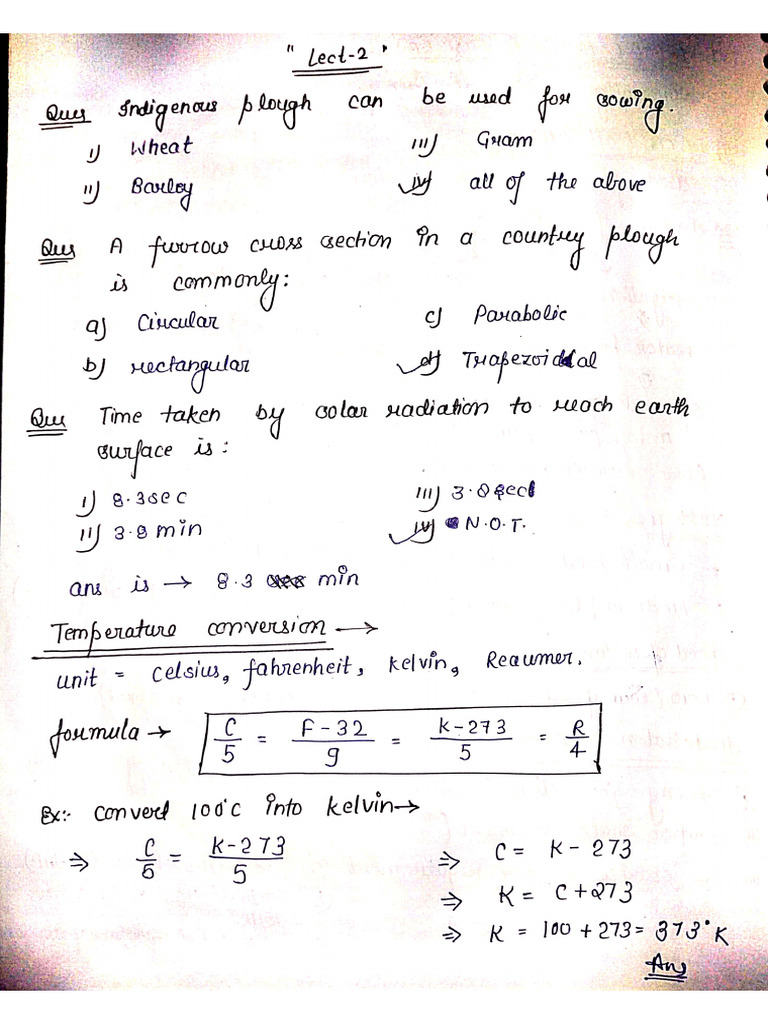 " Lect-2 "
Ques Indigenous plough can be used for sowing.
i) Wheat iii) Gram
ii) Barley iv) all of the above
Ques A furrow cross section in a country plough
is commonly:
a) Circular c) Parabolic
b) rectangular d) Trapezoidal
Ques Time taken by solar radiation to reach earth
surface is:
i) 8.3 sec iii) 3.8 sec
ii) 3.8 min iv) N.O.T.
ans is → 8.3 min
Temperature conversion →
unit = Celsius, fahrenheit, kelvin, Reaumer.
formula → C/5 = F-32/9 = K-273/5 = R/4
Ex:- convert 100°C into kelvin →
⇒ C/5 = K-273/5 ⇒ C = K - 273
⇒ K = C+273
⇒ K = 100 + 273 = 373°K
Ans